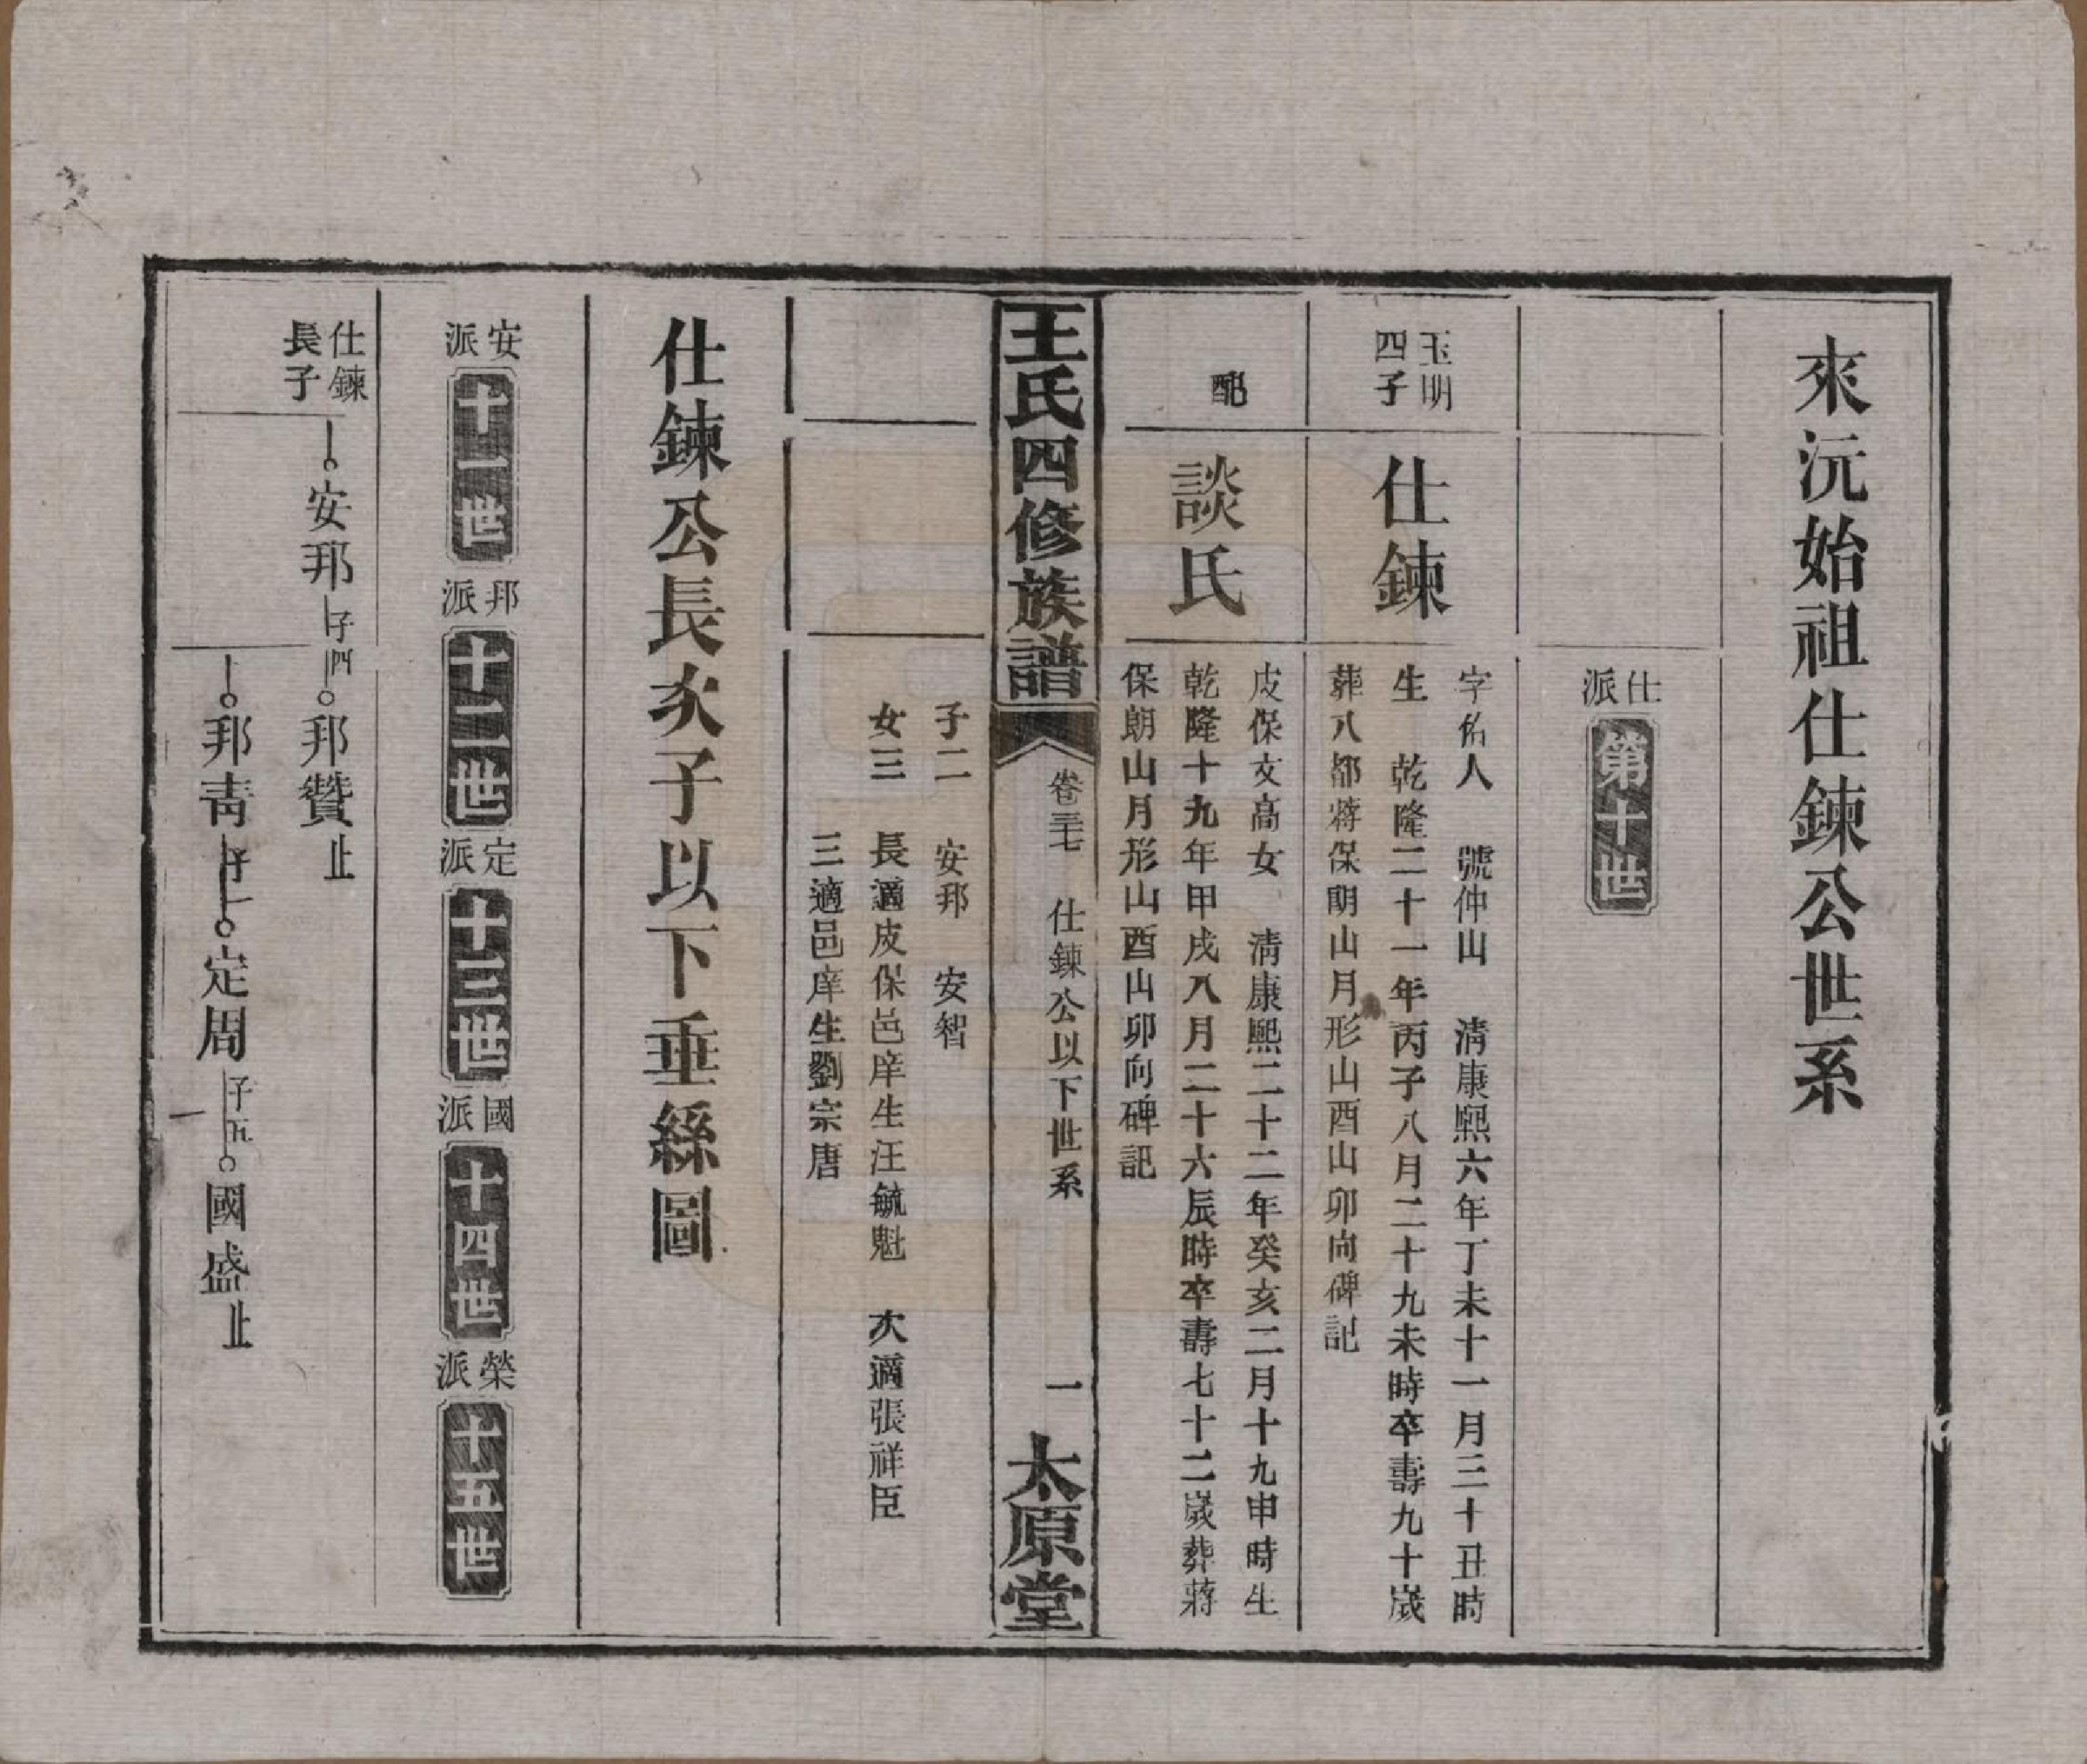 來沅始祖仕鍊公世系
仕派
第十世
玉明四子
仕鍊
字佑人　號仲山　清康熙六年丁未十一月三十丑時
生　乾隆二十一年丙子八月二十九未時卒壽九十歲
葬八都蔣保朗山月形山酉山卯向碑記
配
談氏
皮保文高女　清康熙二十二年癸亥二月十九申時生
乾隆十九年甲戌八月二十六辰時卒壽七十二歲葬蔣
保朗山月形山酉山卯向碑記
王氏四修族譜
卷三七　仕鍊公以下世系
一
太原堂
子二　安邦　安智
女三　長適皮保邑庠生汪毓魁　次適張祥臣
三適邑庠生劉宗唐
仕鍊公長次子以下垂絲圖
安派
十一世
邦派
十二世
定派
十三世
國派
十四世
榮派
十五世
仕鍊長子
安邦
子四
邦贊
止
邦靑
子一
定周
子五
國盛
止